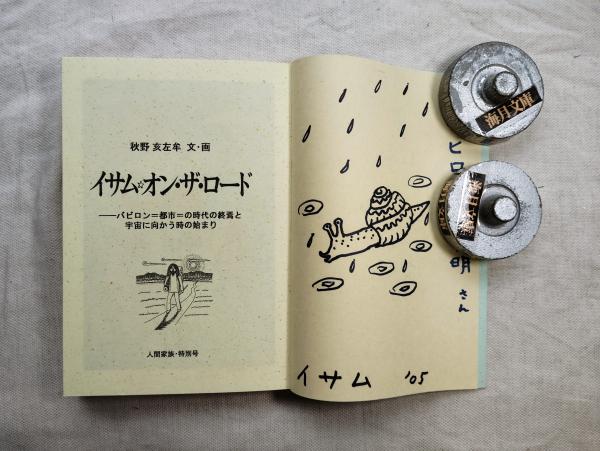 秋野 亥左牟 文・画
イサム☆オン・ザ・ロード
――バビロン=都市=の時代の終焉と
宇宙に向かう時の始まり
人間家族・特別号
ヒロ
明さん
イサム '05
海月文庫
海月文庫